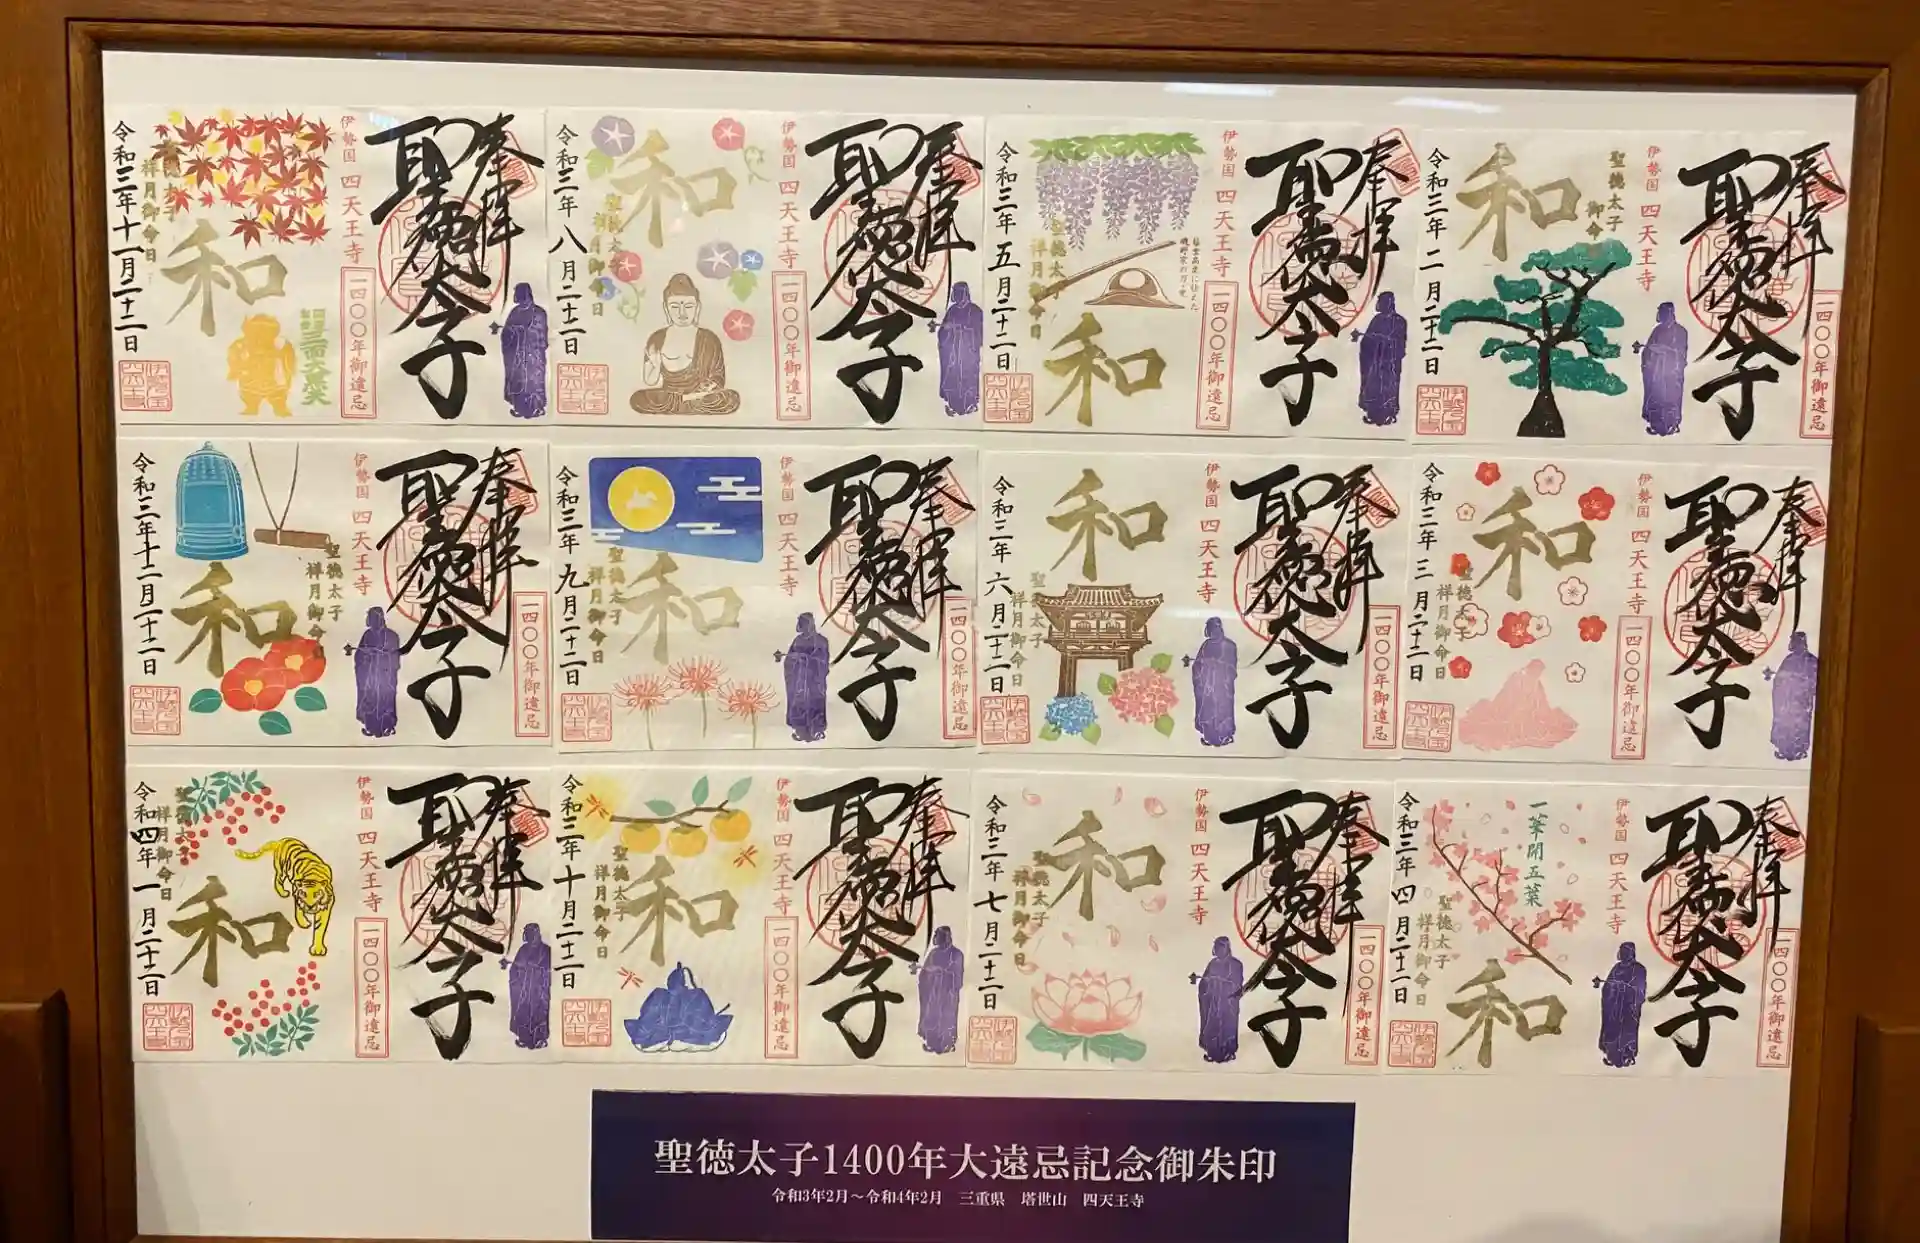 奉拝
聖徳太子
一四〇〇年御遠忌
伊勢国 四天王寺
聖徳太子
御命日
和
令和三年 二月二十二日
奉拝
聖徳太子
一四〇〇年御遠忌
伊勢国 四天王寺
聖徳太子
祥月御命日
和
令和三年 三月二十二日
奉拝
聖徳太子
一四〇〇年御遠忌
伊勢国 四天王寺
一華開五葉
聖徳太子
祥月御命日
和
令和三年 四月二十二日
奉拝
聖徳太子
一四〇〇年御遠忌
伊勢国 四天王寺
聖徳太子
祥月御命日
和
令和三年 五月二十二日
奉拝
聖徳太子
一四〇〇年御遠忌
伊勢国 四天王寺
聖徳太子
祥月御命日
和
令和三年 六月二十二日
奉拝
聖徳太子
一四〇〇年御遠忌
伊勢国 四天王寺
聖徳太子
祥月御命日
和
令和三年 七月二十二日
奉拝
聖徳太子
一四〇〇年御遠忌
伊勢国 四天王寺
聖徳太子
祥月御命日
和
令和三年 八月二十二日
奉拝
聖徳太子
一四〇〇年御遠忌
伊勢国 四天王寺
聖徳太子
祥月御命日
和
令和三年 九月二十二日
奉拝
聖徳太子
一四〇〇年御遠忌
伊勢国 四天王寺
聖徳太子
祥月御命日
和
令和三年 十月二十二日
奉拝
聖徳太子
一四〇〇年御遠忌
伊勢国 四天王寺
聖徳太子
祥月御命日
和
三面大黒天
令和三年 十一月二十二日
奉拝
聖徳太子
一四〇〇年御遠忌
伊勢国 四天王寺
聖徳太子
祥月御命日
和
令和三年 十二月二十二日
奉拝
聖徳太子
一四〇〇年御遠忌
伊勢国 四天王寺
聖徳太子
祥月御命日
和
令和四年 一月二十二日
聖徳太子1400年大遠忌記念御朱印
令和3年2月～令和4年2月 三重県 塔世山 四天王寺